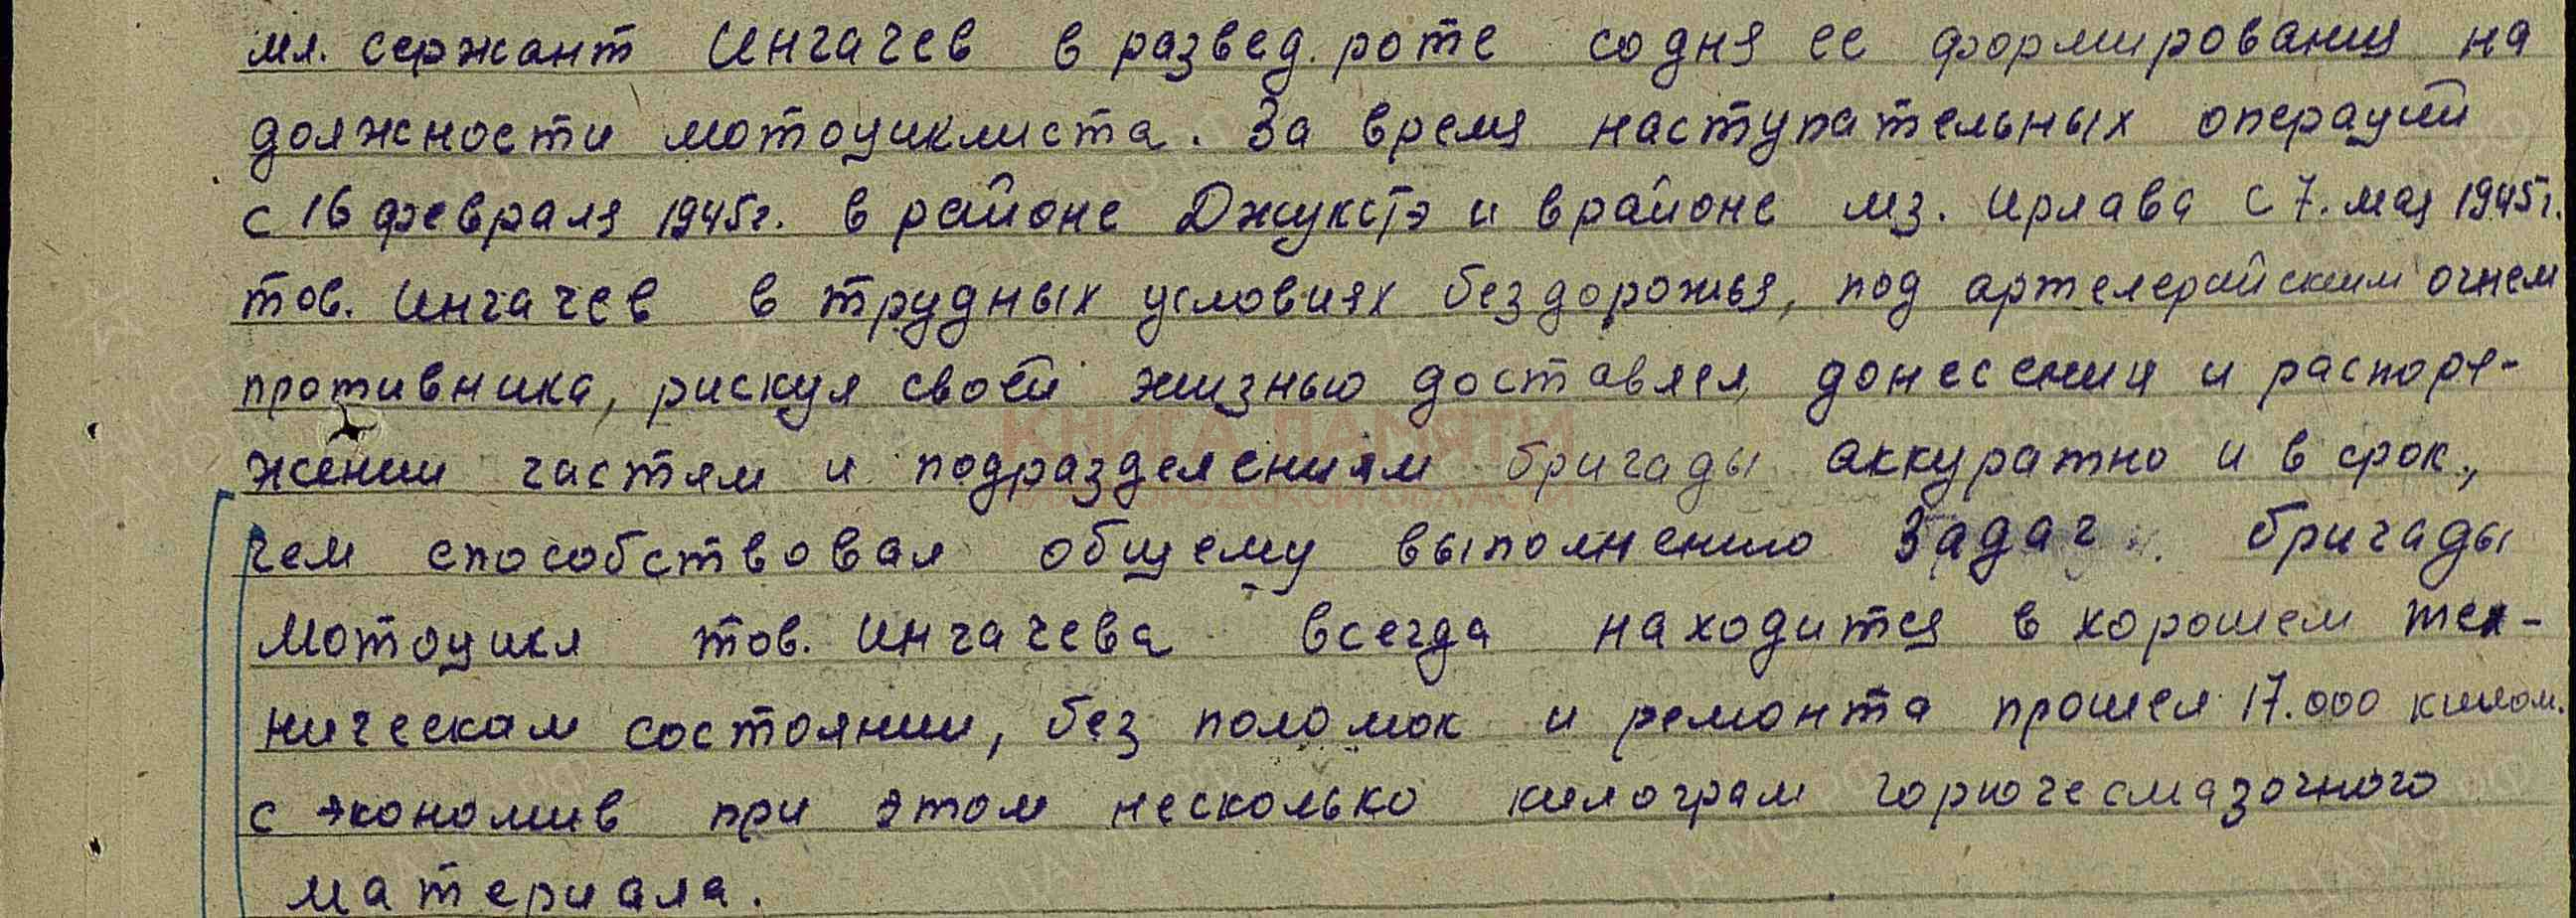 мл. сержант Ингачев в развед. роте со дня ее формирования на
должности мотоциклиста. За время наступательных операций
с 16 февраля 1945г. в районе Джукстэ и в районе мз. Ирлава с 7. мая 1945г.
тов. Ингачев в трудных условиях бездорожья, под артелерийским огнем
противника, рискуя своей жизнью доставлял донесения и распоря-
жении частям и подразделениям бригады аккуратно и в срок,
чем способствовал общему выполнению задач бригады
Мотоцикл тов. Ингачева всегда находится в хорошем тех-
ническом состоянии, без поломок и ремонта прошел 17.000 килом.
с экономив при этом несколько килограм горючесмазочного
материала.
КНИГА ПАМЯТИ